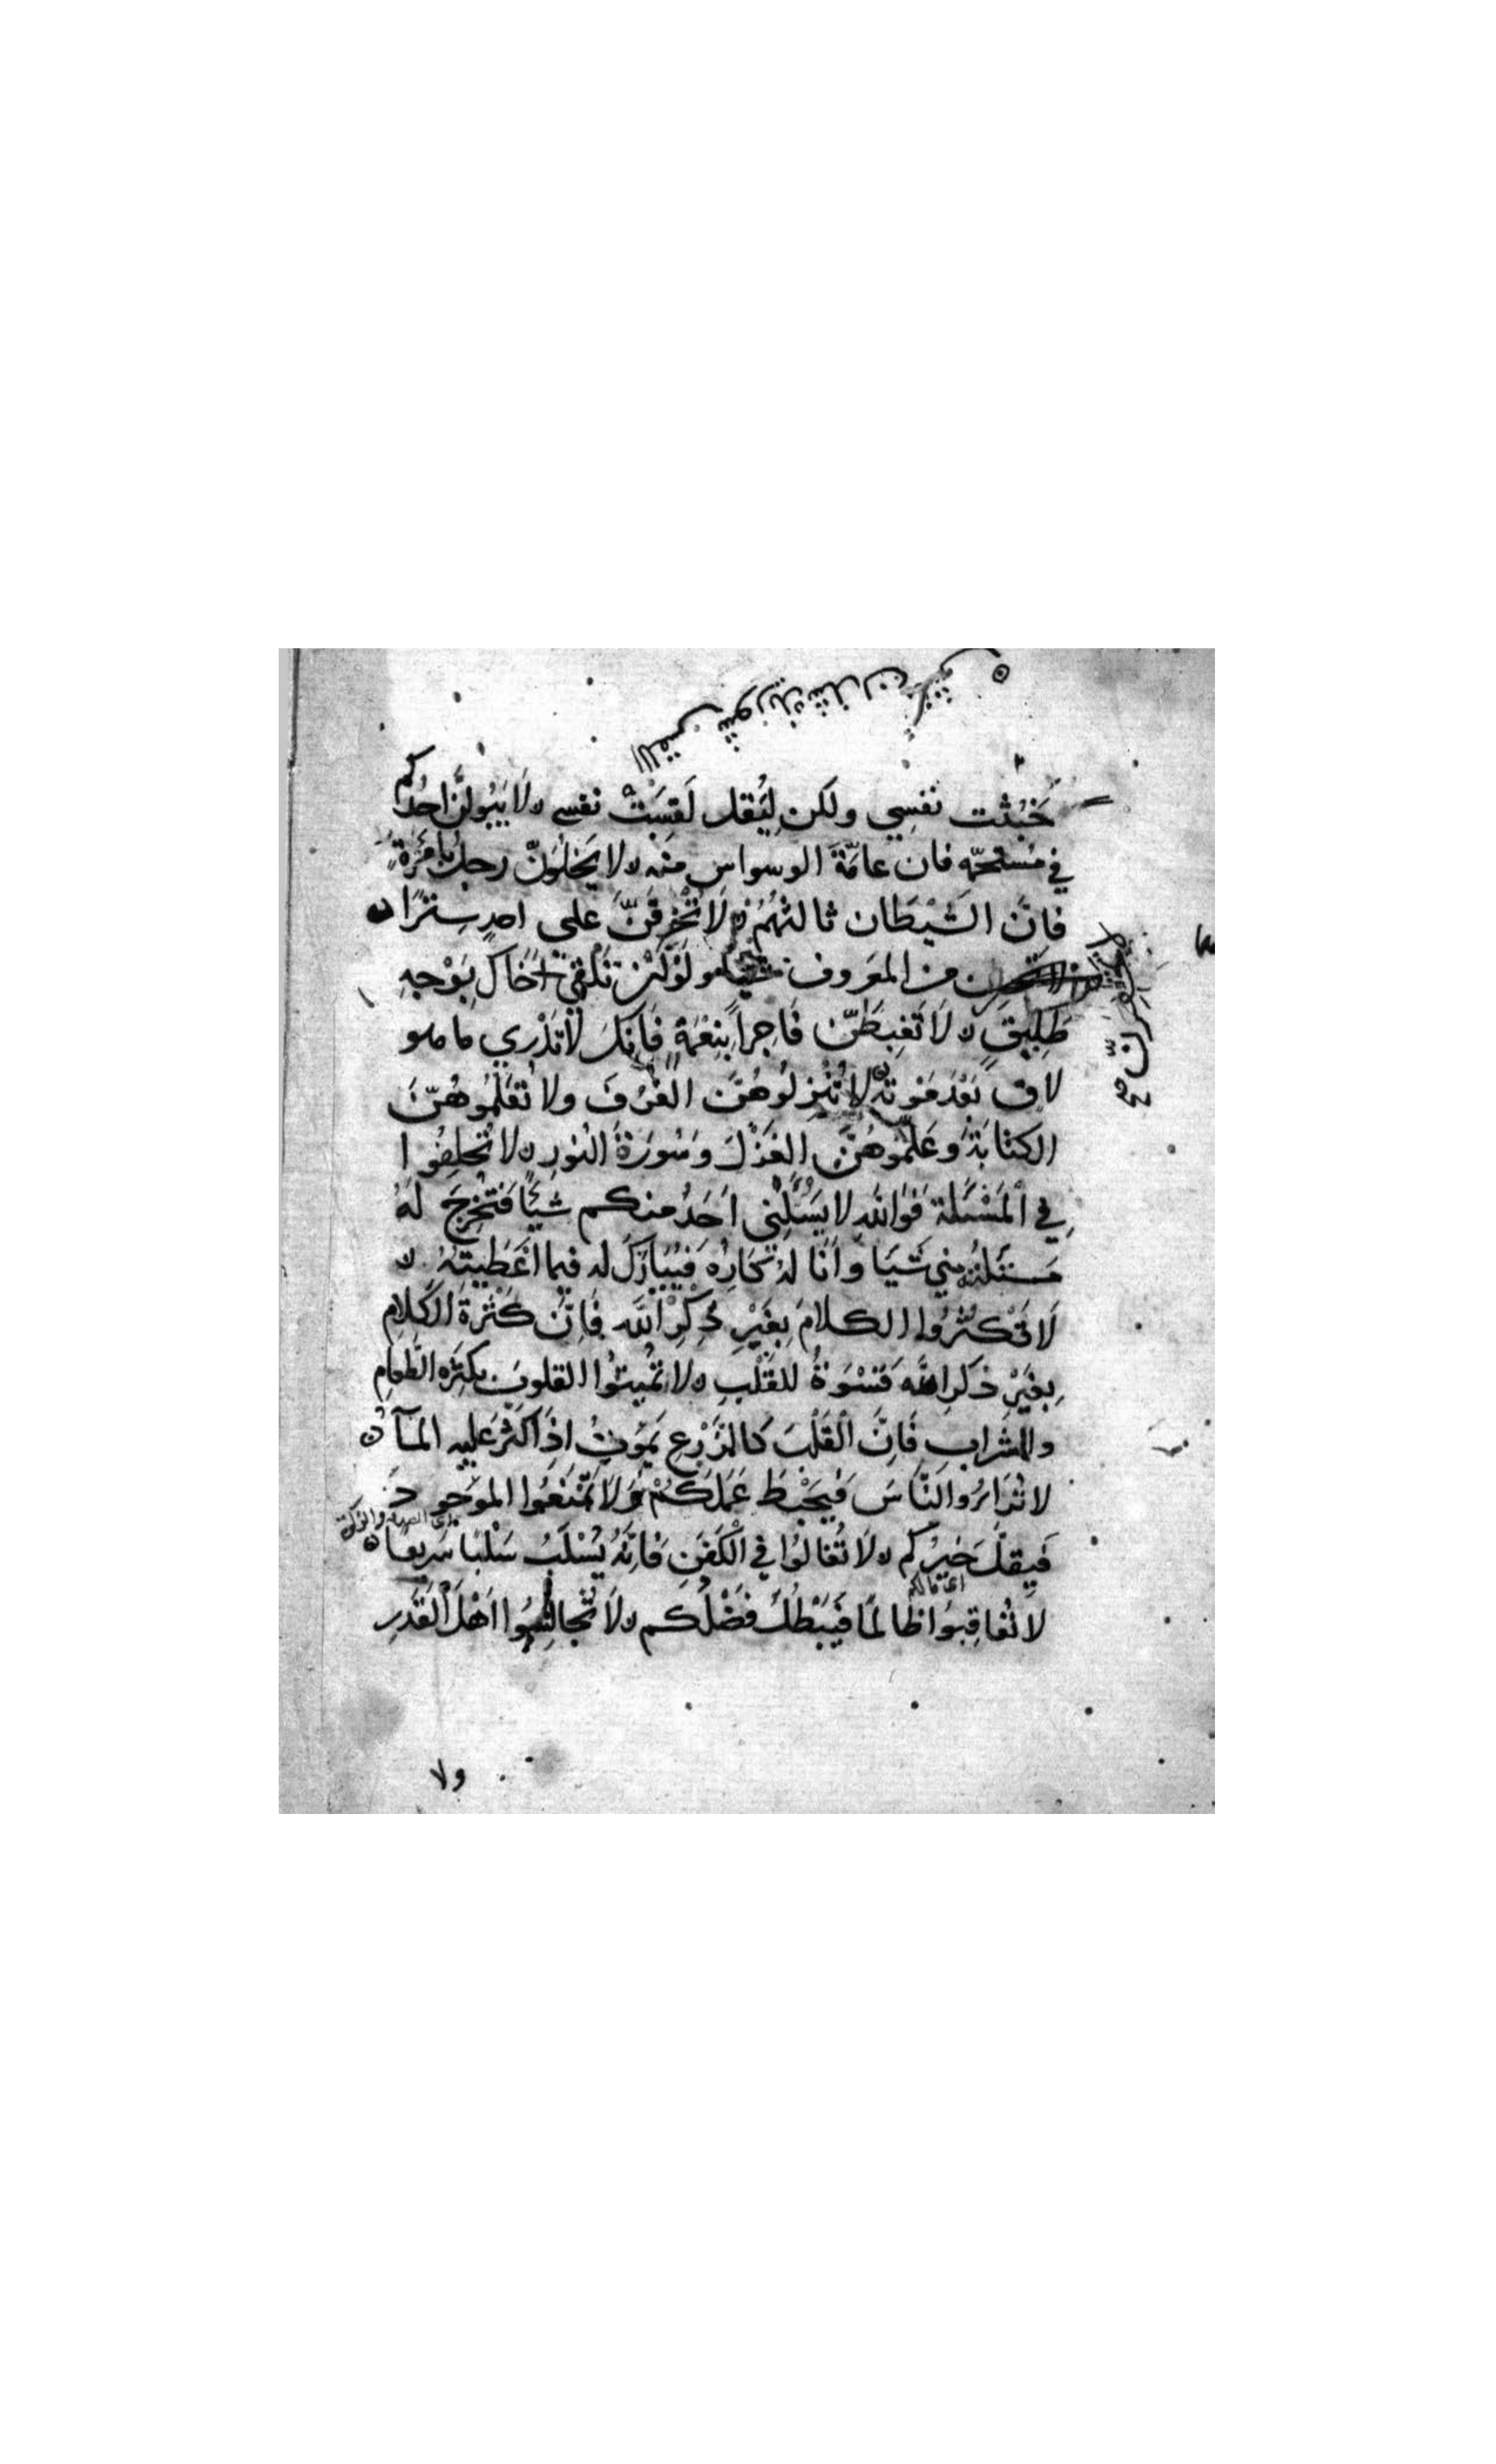 خَبُثَت نفسِي ولكن لِيَقل لَقِسَتْ نفسي لا يَبُولَنَّ احدُكم
في مستحمّه فان عامّةَ الوسواس منه لا يَخلوَنّ رجل بامرَءةٍ
فانَّ الشَيْطَان ثالثهُمْ لَا تُخْرِقَنَّ على احدٍ سِترًا
من المعَروف شيأ ولَوْ انْ تَلْقَي اخَاكَ بوَجهٍ
طَلِيقٍ لَا تَغبِطَنّ فَاجِراً بِنِعْمَةٍ فَانِكَ لَا تَدْرِي ما هو
لاق بَعْدَ مَوته لا تُنْزِلُوهُنَّ الغُرَفَ ولا تُعَلِّمُوهُنّ
الكتَابَةَ وعَلِّمُوهُنَّ الغَزْلَ وَسُورَةَ النُورِ لا تُحلِفُوا
فِي المَسْئَلة فَوَاللهِ لا يَسْئَلنِي اَحَدٌ منكم شيَئًا فَتُخْرِجَ لَهُ
مسئلتُه مِني شَيَا وَانَا لهُ كَارِهٌ فَيُبَارَكَ له فيما اَعْطَيتُهُ
لَا تُكْثِرُوا الكلامَ بِغَيْرِ ذِكِرْ اللَّه فَانَّ كَثْرةَ الكَلامِ
بِغَيْرِ ذكرِ اللَّه قَسْوَةٌ للقَلْبِ لا تُمِيتُوا القلوبَ بكثرةِ الطَعامِ
والشراب فَانَّ القَلْبَ كالزَرْعِ يَمُوتُ اذَا كَثُرَ عَليه المآءُ
لا تُزَاءرُوا النّاسَ فَيَحْبِطَ عَمَلُكُمْ وَلَا تمْنَعُوا الموَجودَ
فَيَقِلَّ خَيرُكم لَا تُغالوُا في الْكَفَنِ فَانَّهُ يُسْلَبُ سَلْبًا سَرِيعًا
لا تُعَاقِبوُا ظالمًا فَيَبْطُلَ فَضْلُكم لَا تُجالِسُوا اهْلَ القَدَرِ
ولا